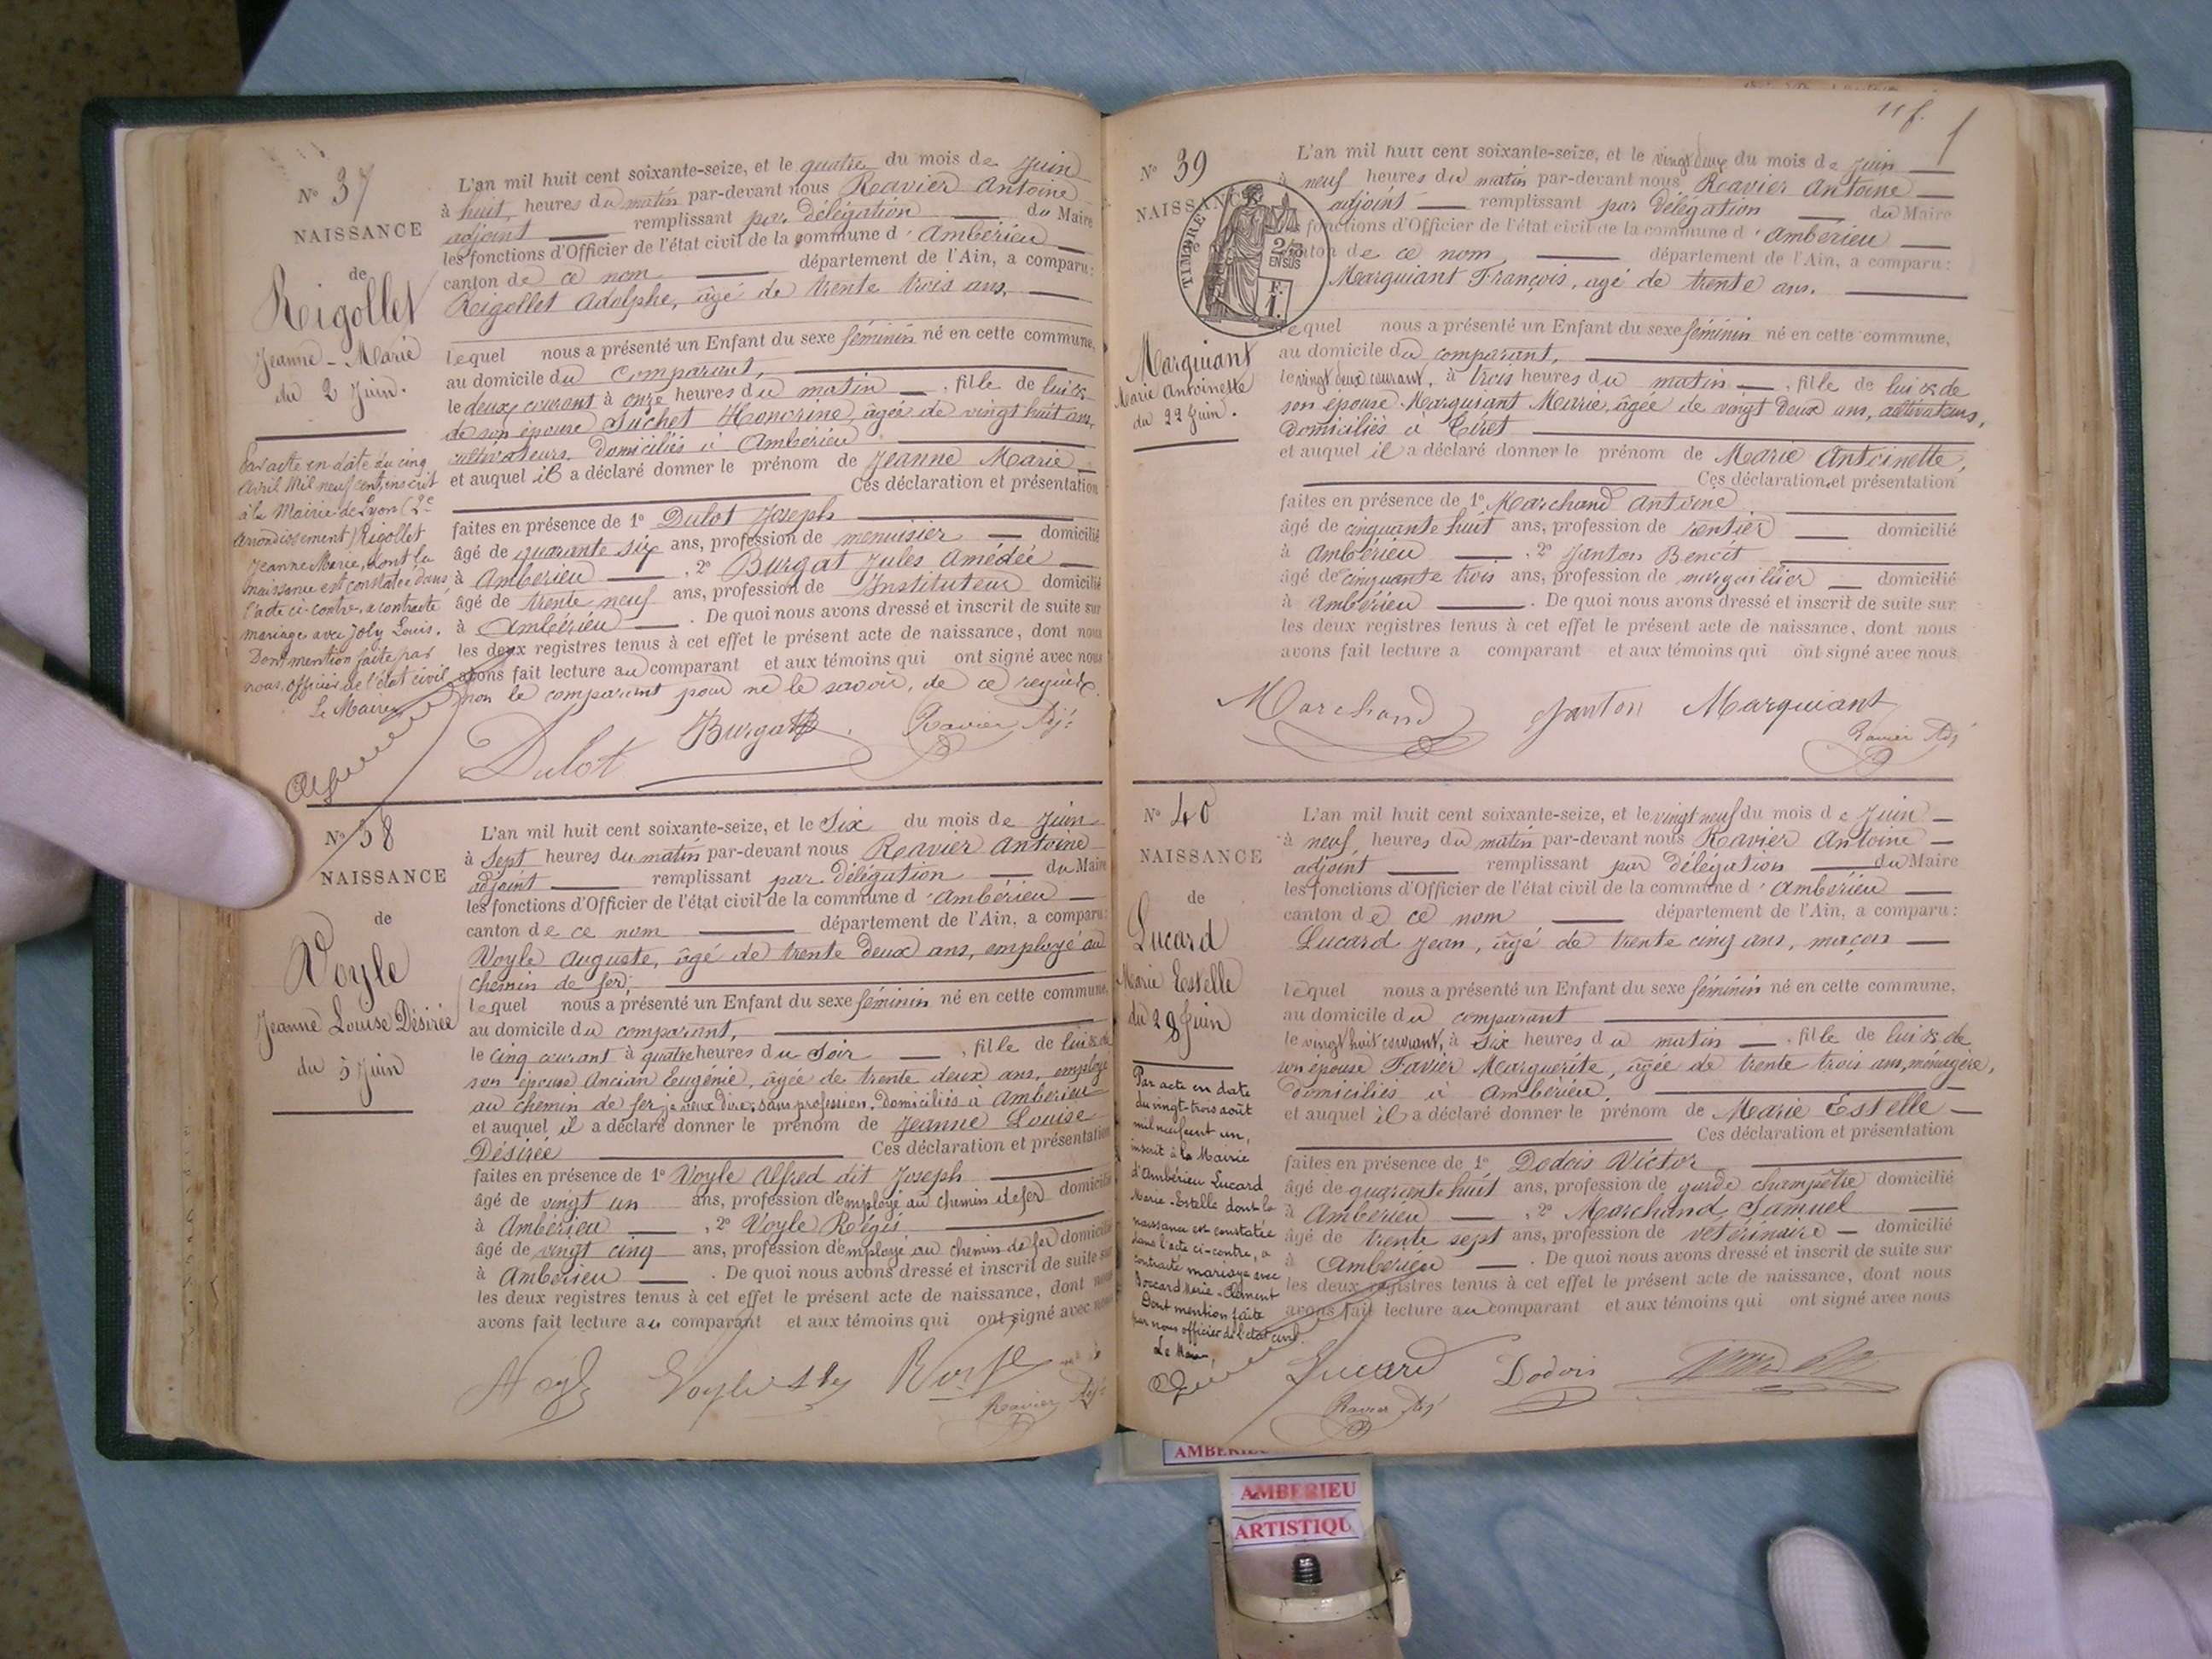 N° 37
NAISSANCE
de
Rigollet
Jeanne-Marie
du 2 Juin.
Par acte en date du cinq
avril mil neuf cent, inscrit
à la Mairie de Lyon (2e
arrondissement) Rigollet
Jeanne Marie, dont la
naissance est constatée dans
l'acte ci-contre, a contracté
mariage avec Joly Louis.
Dont mention faite par
nous, officier de l'état civil
Le Maire
L'an mil huit cent soixante-seize, et le quatre du mois de Juin
à huit heures du matin par-devant nous Ravier Antoine
adjoint remplissant par délégation du Maire
les fonctions d'Officier de l'état civil de la commune d'Ambérieu
canton de ce nom département de l'Ain, a comparu:
Rigollet Adolphe, âgé de trente trois ans,
lequel nous a présenté un Enfant du sexe féminin né en cette commune,
au domicile du comparant,
le deux courant à onze heures du matin, fille de lui &
de son épouse Suchet Honorine, âgée de vingt huit ans,
cultivateurs, domiciliés à Ambérieu
et auquel il a déclaré donner le prénom de Jeanne Marie
Ces déclaration et présentation
faites en présence de 1° Dulot Joseph
âgé de quarante six ans, profession de menuisier domicilié
à Ambérieu, 2° Burgat Jules Amédée
âgé de trente neuf ans, profession de Instituteur domicilié
à Ambérieu. De quoi nous avons dressé et inscrit de suite sur
les deux registres tenus à cet effet le présent acte de naissance, dont nous
avons fait lecture au comparant et aux témoins qui ont signé avec nous
non le comparant pour ne le savoir, de ce requis.
Dulot Burgat Ravier Adj.
N° 38
NAISSANCE
de
Voyle
Jeanne Louise Désirée
du 5 Juin
L'an mil huit cent soixante-seize, et le Six du mois de Juin
à Sept heures du matin par-devant nous Ravier Antoine
adjoint remplissant par délégation du Maire
les fonctions d'Officier de l'état civil de la commune d'Ambérieu
canton de ce nom département de l'Ain, a comparu:
Voyle Auguste, âgé de trente deux ans, employé au
chemin de fer,
lequel nous a présenté un Enfant du sexe féminin né en cette commune,
au domicile du comparant,
le cinq courant à quatre heures du Soir, fille de lui & de
son épouse Ancian Eugénie, âgée de trente deux ans, employé
au chemin de fer je veux dire, sans profession, domiciliés à Ambérieu
et auquel il a déclaré donner le prénom de Jeanne Louise
Désirée Ces déclaration et présentation
faites en présence de 1° Voyle Alfred dit Joseph
âgé de vingt un ans, profession d'employé au chemin de fer domicilié
à Ambérieu, 2° Voyle Régis
âgé de vingt cinq ans, profession d'employé au chemin de fer domicilié
à Ambérieu. De quoi nous avons dressé et inscrit de suite sur
les deux registres tenus à cet effet le présent acte de naissance, dont nous
avons fait lecture au comparant et aux témoins qui ont signé avec nous
Ravier Adj.
11 f.
N° 39
NAISSANCE
TIMBRE
2/10 EN SUS
F. 1.
Marguiant
Marie Antoinette
du 22 Juin.
L'an mil huit cent soixante-seize, et le vingt deux du mois de Juin
à neuf heures du matin par-devant nous Ravier Antoine
adjoint remplissant par délégation du Maire
fonctions d'Officier de l'état civil de la commune d'Ambérieu
canton de ce nom, département de l'Ain, a comparu:
Marguiant François, âgé de trente ans.
lequel nous a présenté un Enfant du sexe féminin né en cette commune,
au domicile du comparant,
le vingt deux courant, à trois heures du matin, fille de lui & de
son épouse Marguiant Marie, âgée de vingt deux ans, cultivateurs,
domiciliés à Tiret
et auquel il a déclaré donner le prénom de Marie Antoinette,
Ces déclaration et présentation
faites en présence de 1° Marchand Antoine
âgé de cinquante huit ans, profession de rentier domicilié
à Ambérieu, 2° Janton Benoit
âgé de cinquante trois ans, profession de marguillier domicilié
à Ambérieu. De quoi nous avons dressé et inscrit de suite sur
les deux registres tenus à cet effet le présent acte de naissance, dont nous
avons fait lecture a comparant et aux témoins qui ont signé avec nous
Marchand Janton Marguiant
Ravier Adj
N° 40
NAISSANCE
de
Lucard
Marie Estelle
du 28 Juin
Par acte en date
du vingt-trois août
mil neuf cent un,
inscrit à la Mairie
d'Ambérieu Lucard
Marie-Estelle dont la
naissance est constatée
dans l'acte ci-contre, a
contracté mariage avec
Boccard Marie-Clément
Dont mention faite
par nous officier de l'état civil
Le Maire,
L'an mil huit cent soixante-seize, et le vingt neuf du mois de Juin
à neuf heures du matin par-devant nous Ravier Antoine
adjoint remplissant par délégation du Maire
les fonctions d'Officier de l'état civil de la commune d'Ambérieu
canton de ce nom département de l'Ain, a comparu:
Lucard Jean, âgé de trente cinq ans, maçon
lequel nous a présenté un Enfant du sexe féminin né en cette commune,
au domicile du comparant
le vingt huit courant, à Six heures du matin, fille de lui & de
son épouse Favier Marguerite, âgée de trente trois ans, ménagère,
domiciliés à Ambérieu.
et auquel il a déclaré donner le prénom de Marie Estelle
Ces déclaration et présentation
faites en présence de 1° Dodois Victor
âgé de quarante huit ans, profession de garde champêtre domicilié
à Ambérieu, 2° Marchand Samuel
âgé de trente sept ans, profession de vétérinaire domicilié
à Ambérieu. De quoi nous avons dressé et inscrit de suite sur
les deux registres tenus à cet effet le présent acte de naissance, dont nous
avons fait lecture au comparant et aux témoins qui ont signé avec nous
Lucard Dodois
Ravier Adj
AMBERIEU
AMBERIEU
ARTISTIQU